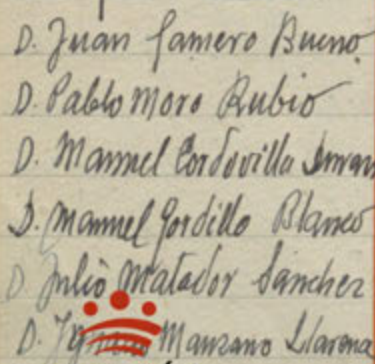 D. Juan Gamero Bueno
D. Pablo Moro Rubio
D. Manuel Cordovilla Duran
D. Manuel Gordillo Blanco
D. Julio Matador Sánchez
D. Manzano Llarena